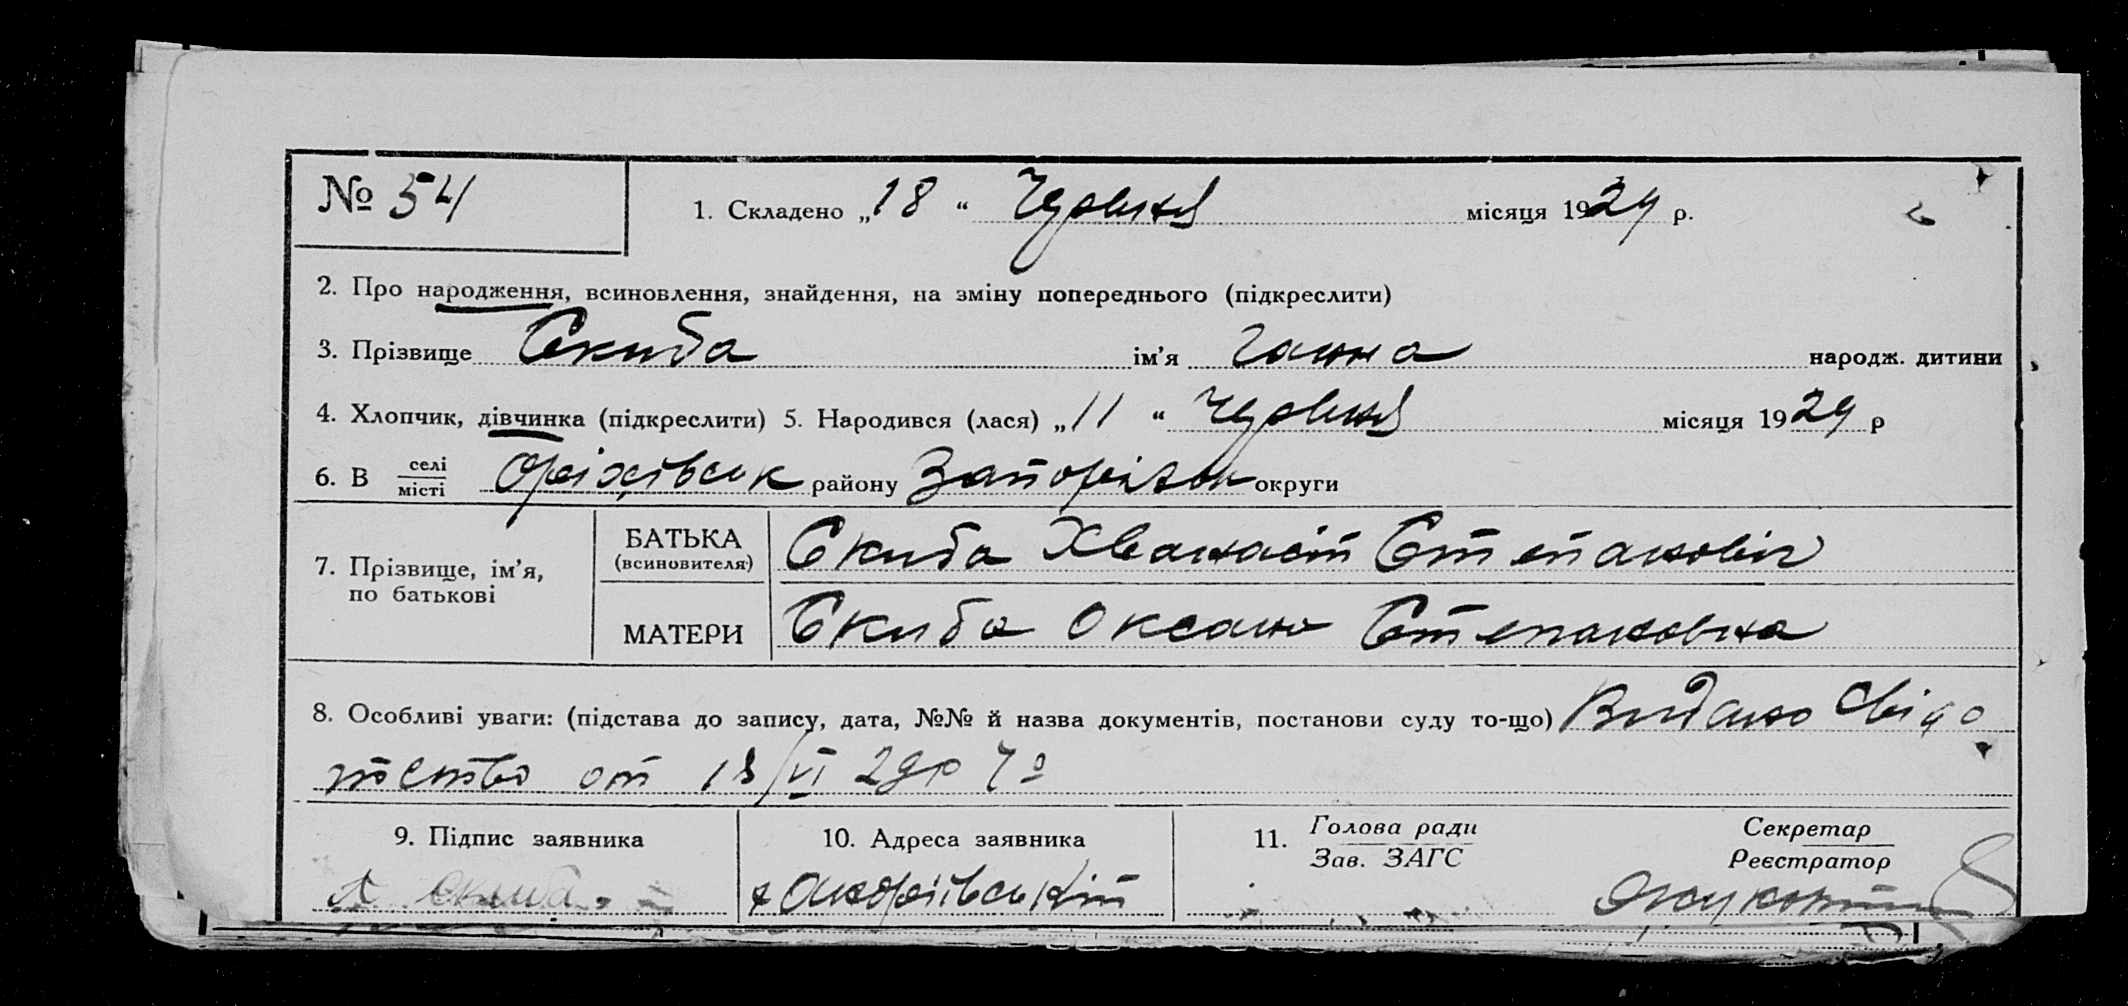 № 54 1. Складено „18“ Червня місяця 1929 р.
2. Про народження, всиновлення, знайдення, на зміну попереднього (підкреслити)
3. Прізвище Скиба ім'я Ганна народж. дитини
4. Хлопчик, дівчинка (підкреслити) 5. Народився (лася) „11“ Червня місяця 1929 р
6. В селі/місті Оріхівськ району Запоріжж округи
7. Прізвище, ім'я, по батькові
БАТЬКА (всиновителя) Скиба Хванасіт Степановіч
МАТЕРИ Скиба Оксана Степановна
8. Особливі уваги: (підстава до запису, дата, №№ й назва документів, постанови суду то-що) Видано свідо
тство от 18/VI 29р
9. Підпис заявника 10. Адреса заявника 11. Голова ради Секретар
Зав. ЗАГС Реєстратор
Скиба